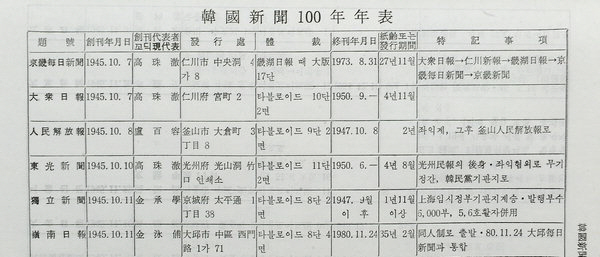 韓國新聞100年年表
題號 創刊年月日 創刊代表者 고딕現代表 發行處 體裁 終刊年月日 紙齡또는 發行期間 特記事項
京畿每日新聞 1945.10. 7 高珠澈 仁川市 中央洞 4 畿湖日報 때 大版 1973. 8.31 27년11월 大衆日報→仁川新報→畿湖日報→京
가 8 17단 畿每日新聞→京畿新聞
大衆日報 1945.10. 7 高珠澈 仁川府 宮町 2 타블로이드 10단 1950. 9.— 4년11월
2면
人民解放報 1945.10. 8 盧百容 釜山市 大倉町 3 타블로이드 9단 2 1947.10. 8 2년 좌익계, 그후 釜山人民解放報로
丁目 8 면
東光新聞 1945.10.10 高珠澈 光州府 光山洞 竹 타블로이드 11단 1950. 6.— 4년 8월 光州民報의 後身·좌익혐의로 무기
口 인쇄소 2면 정간, 韓民黨기관지로
獨立新聞 1945.10.11 金承學 京城府 太平通 1 타블로이드 8단 2 1947. 9월 1년11월 上海임시정부기관지계승·발행부수
丁目 38 면 이 후 이상 6,000부, 5,6호활자併用
嶺南日報 1945.10.11 金泳甫 大邱市 中區 西門 타블로이드 8단 4 1980.11.24 35년 2월 同人制로 출발·80.11.24 大邱每日
路 1가 71 면 新聞과 통합
韓國新聞